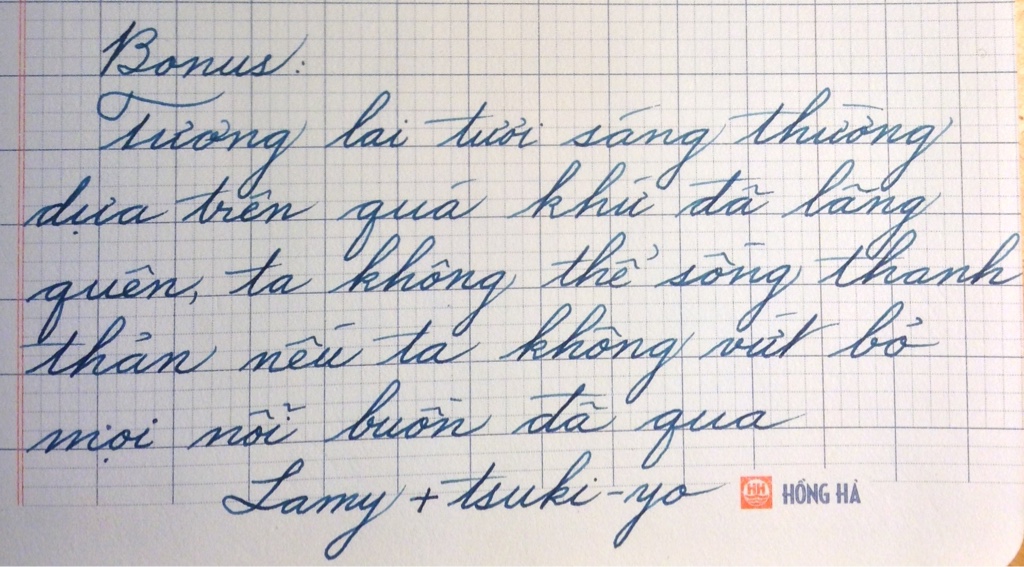 Bonus:
Tương lai tươi sáng thường
dựa trên quá khứ đã lãng
quên, ta không thể sống thanh
thản nếu ta không vứt bỏ
mọi nỗi buồn đã qua
Lamy + tsuki-yo
HH HỒNG HÀ